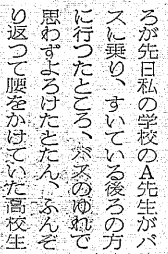 ろが先日私の学校のA先生がバ
スに乗り、すいている後ろの方
に行つたところ、バスのゆれで
思わずよろけたとたん、ふんぞ
り返つて腰をかけていた高校生